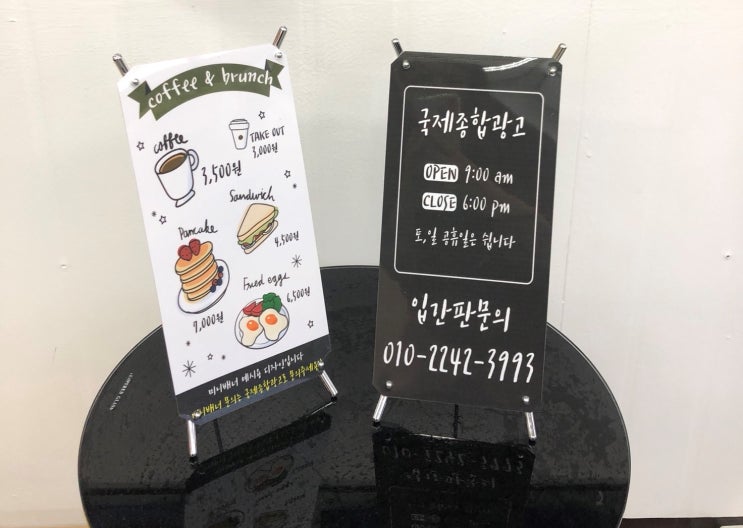 coffee & brunch
coffee
3,500원
TAKE OUT
3,000원
Sandwich
4,500원
Pancake
9,000원
Fried eggs
6,500원
미니배너 예시용 디자인입니다
미니배너 문의는 국제종합광고로 문의주세요
국제종합광고
OPEN 9:00 am
CLOSE 6:00 pm
토,일 공휴일은 쉽니다
입간판문의
010-2242-3993